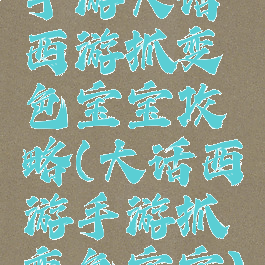 手游大话
西游抓变
色宝宝攻
略(大话西
游手游抓
变色宝宝)